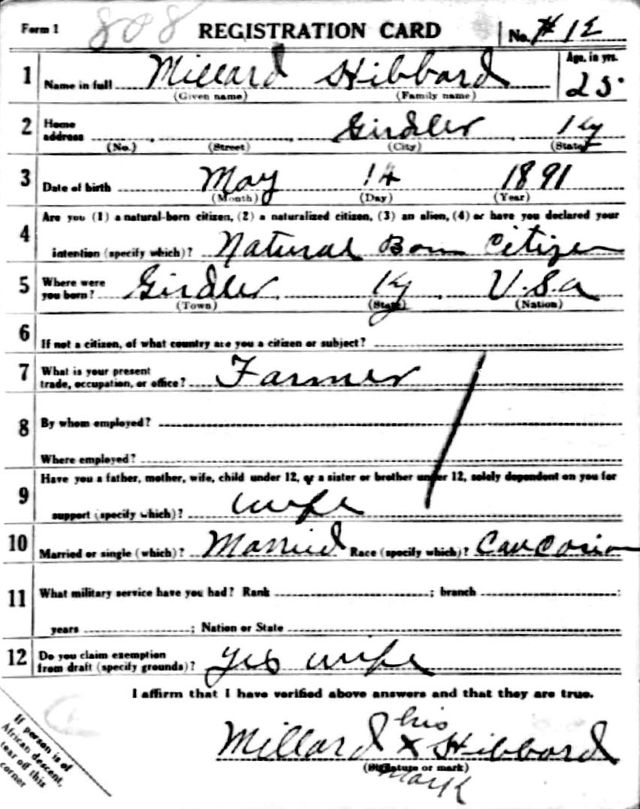 Form 1 808 REGISTRATION CARD No. #12
1 Name in full Millard Hibbard Age, in yrs. 25
(Given name) (Family name)
2 Home address Girdler Ky
(No.) (Street) (City) (State)
3 Date of birth May 14 1891
(Month) (Day) (Year)
4 Are you (1) a natural-born citizen, (2) a naturalized citizen, (3) an alien, (4) or have you declared your
intention (specify which)? Natural Born Citizen
5 Where were you born? Girdler Ky U.S.a
(Town) (State) (Nation)
6 If not a citizen, of what country are you a citizen or subject?
7 What is your present trade, occupation, or office? Farmer
8 By whom employed?
Where employed?
9 Have you a father, mother, wife, child under 12, or a sister or brother under 12, solely dependent on you for
support (specify which)? wife
10 Married or single (which)? Married Race (specify which)? Caucasian
11 What military service have you had? Rank ; branch ;
years ; Nation or State
12 Do you claim exemption from draft (specify grounds)? Yes wife
I affirm that I have verified above answers and that they are true.
his
Millard X Hibbard
(Signature or mark)
mark
If person is of
African descent,
tear off this
corner